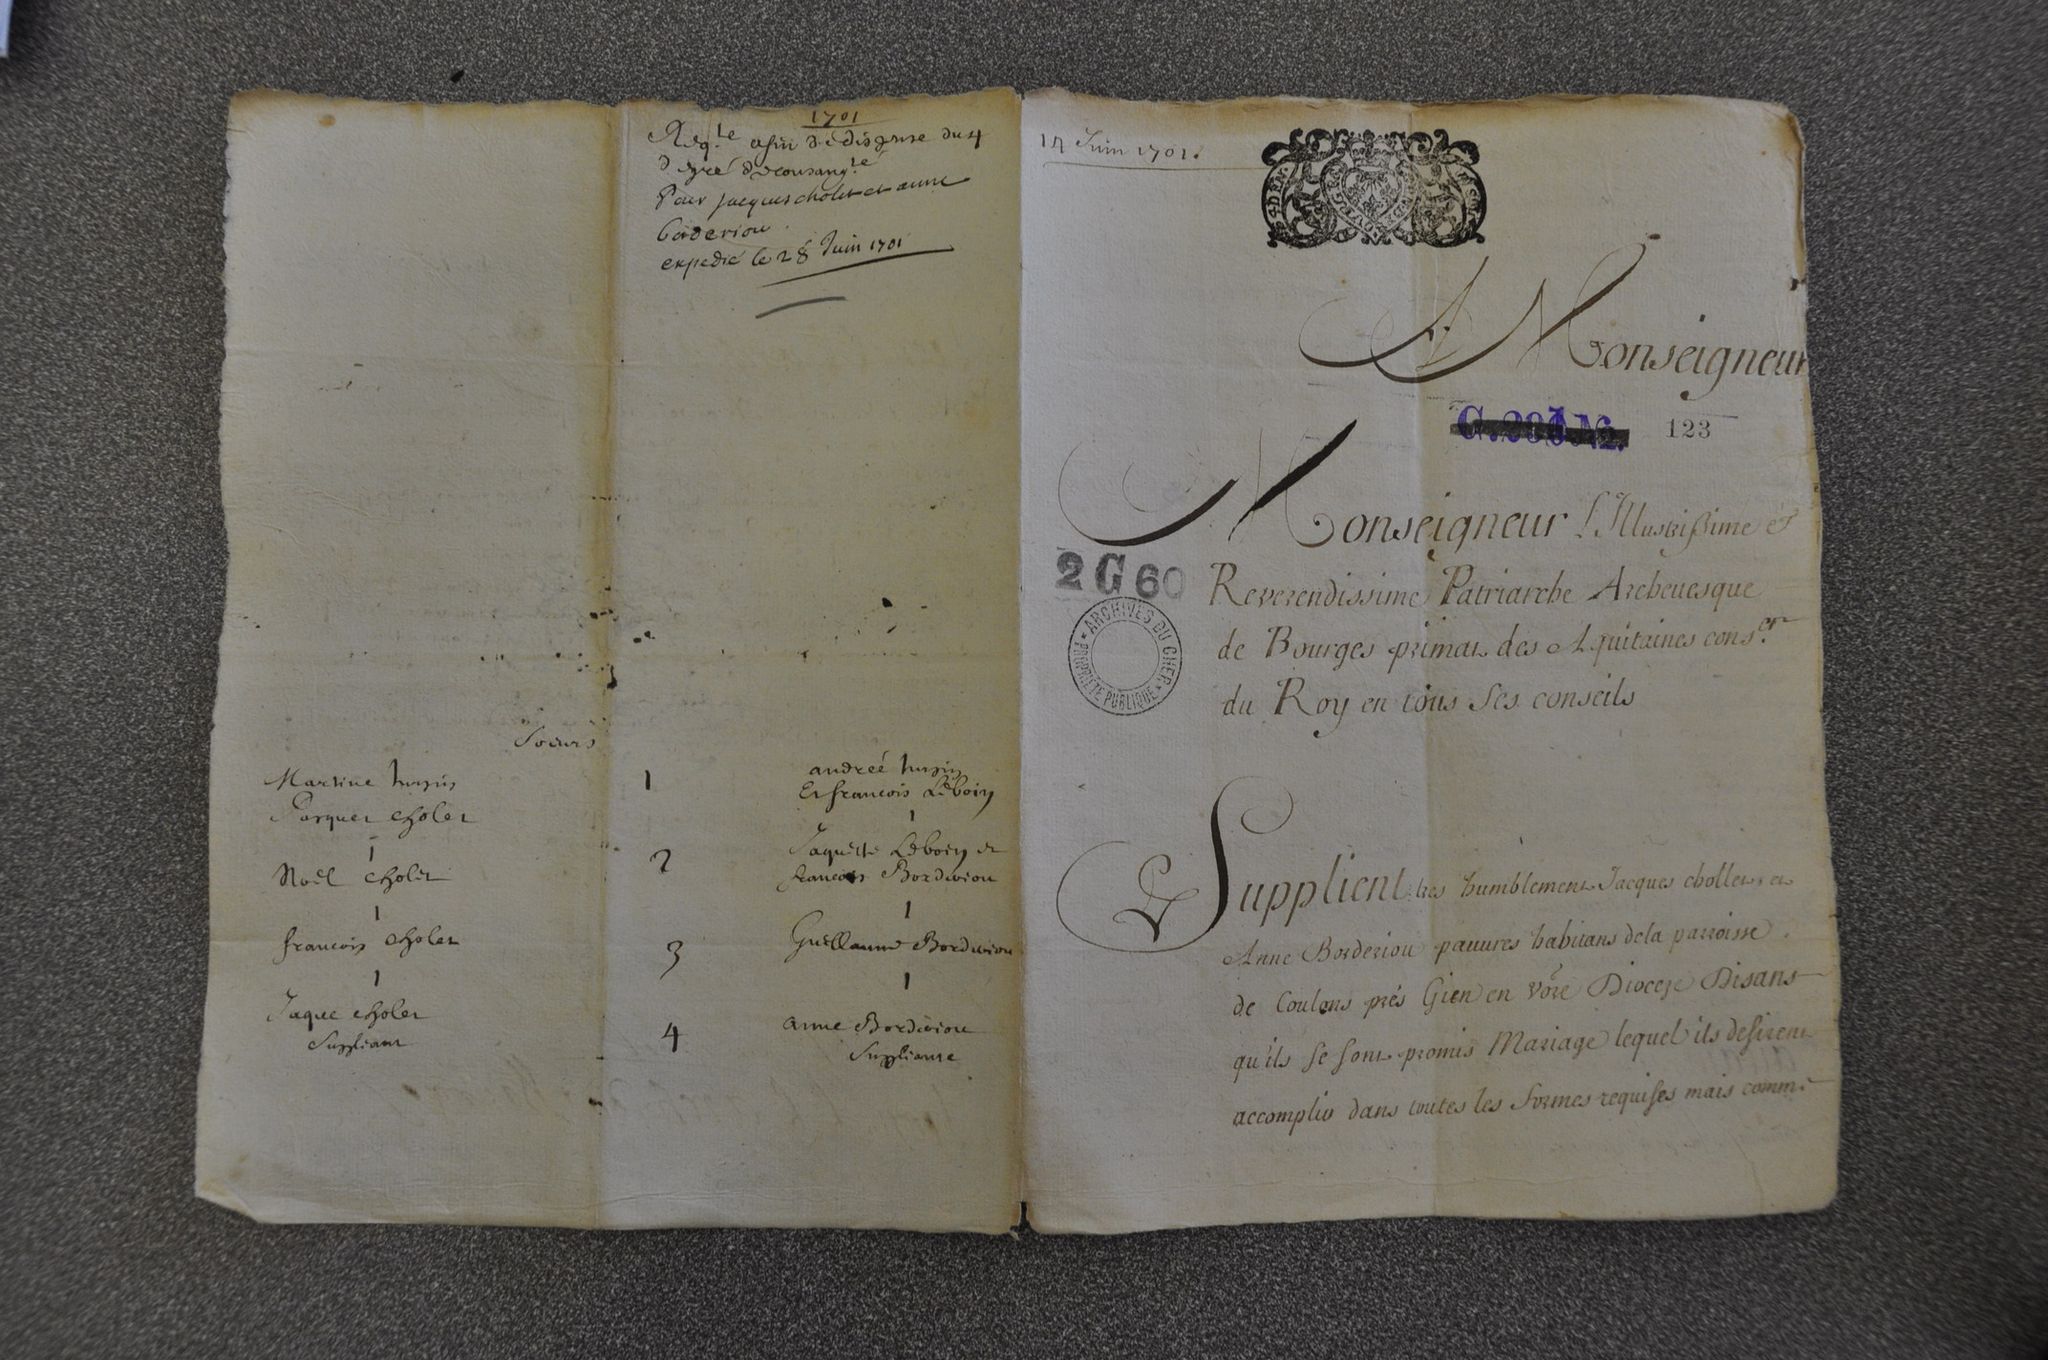 1701
Reqte afin de dispense du 4
degré de consangté
Pour jacques cholet et anne
borderiou.
expedié le 28 Juin 1701
Soeurs
Martine
Pasquet Cholet
Noël Cholet
francois Cholet
Jaque Cholet
Suppliant
1
2
3
4
andrée
Et francois Leboin
Jaquette Leboin et
francois Borderiou
Guillaume Borderiou
Anne Borderiou
Suppliante
14 Juin 1701.
A Monseigneur
G. 123
Monseigneur L'Illustrissime et
Reverendissime Patriarche Archevesque
de Bourges primat des Aquitaines conser
du Roy en tous ses conseils
2 G 60
ARCHIVES DU CHER
PROPRIETE PUBLIQUE
Supplient tres humblement Jacques chollet et
Anne Borderiou pauures habitans de la parroisse
de Coulons prés Gien en vore Diocese Disans
qu'ils se sont promis Mariage lequel ils desirent
accomplir dans toutes les formes requises mais comme